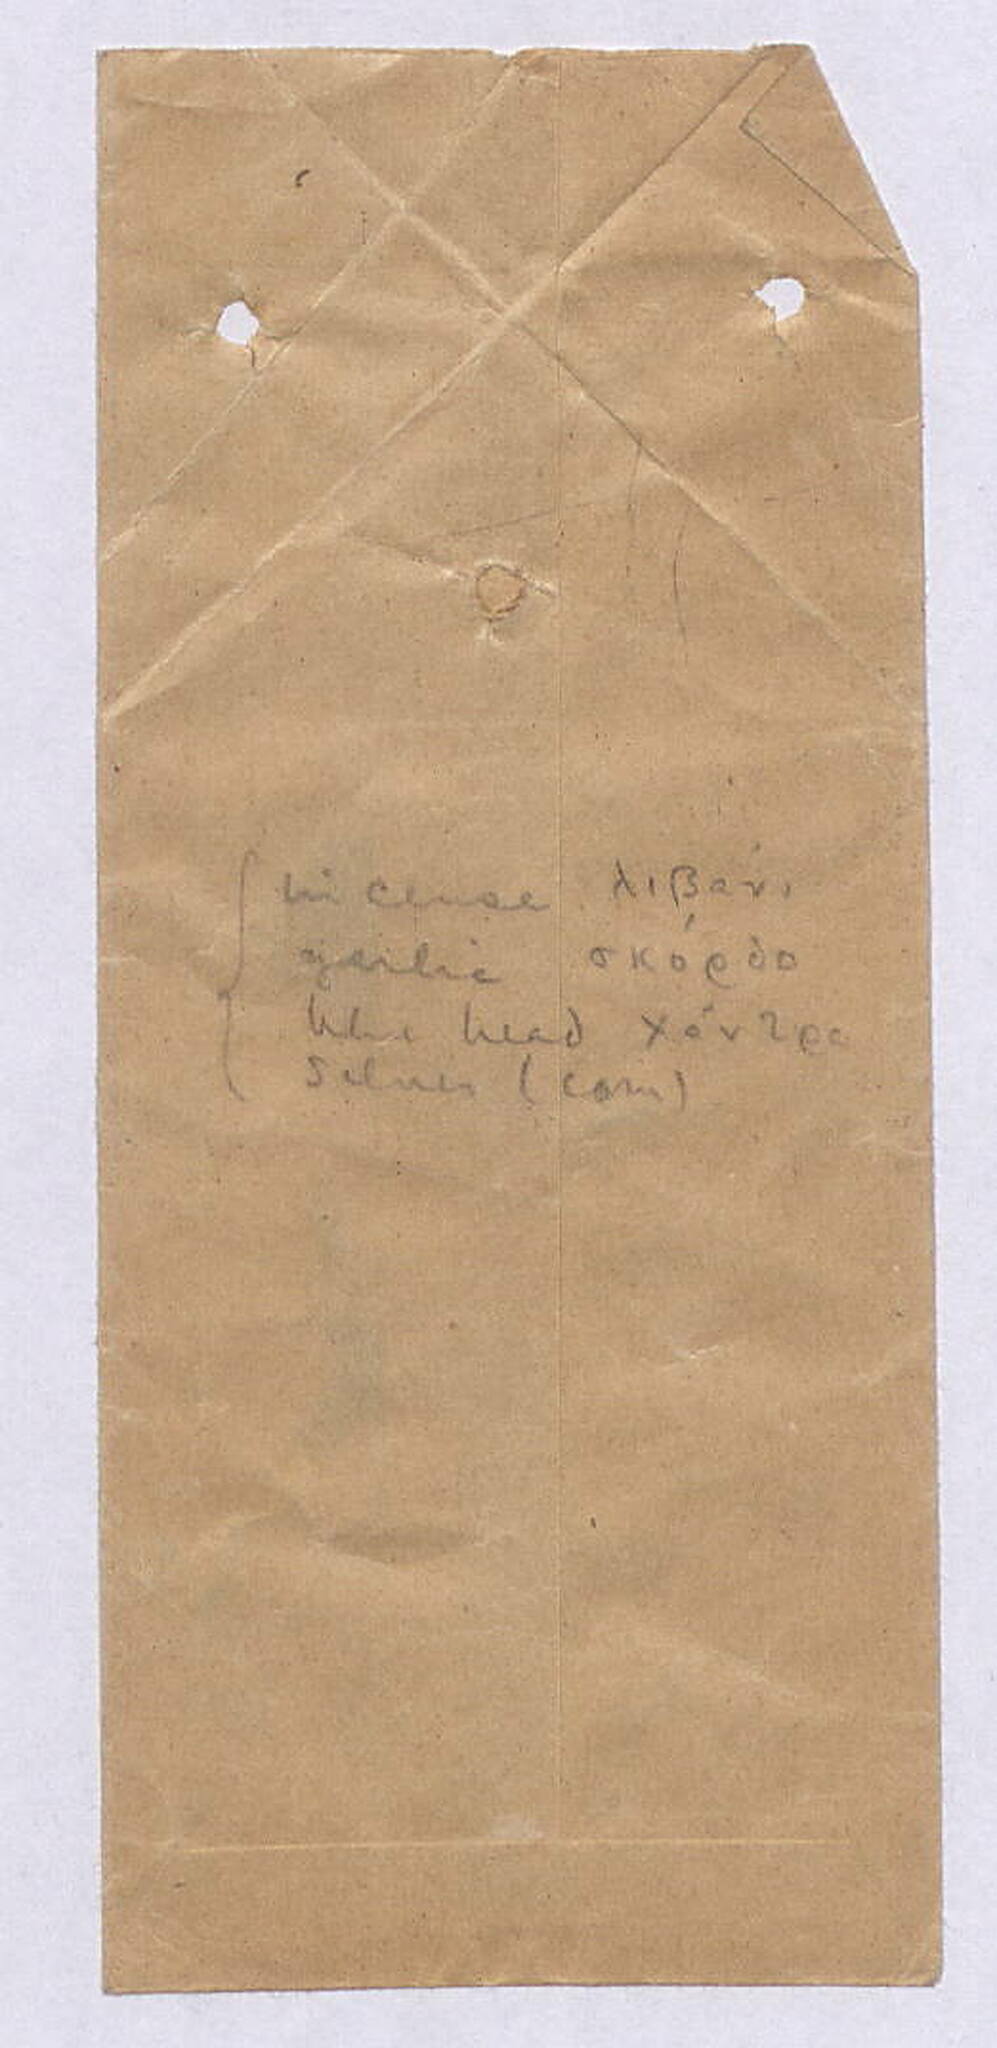 incense λιβάνι
garlic σκόρδο
blue bead χάντρα
Silver (coin)